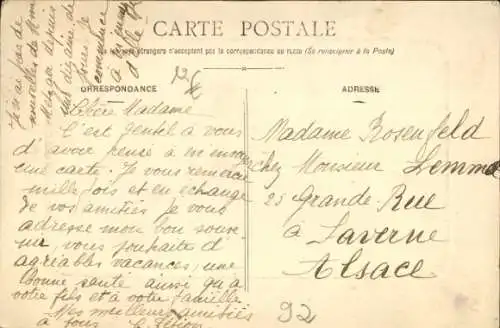 CARTE POSTALE
étrangers n'acceptent pas la correspondance au recto (Se renseigner à la Poste)
CORRESPONDANCE
ADRESSE
J'n'ai pas de
nouvelles de Mme
depuis
une dizaine de
jours. Je
commence
à
Chère Madame
C'est gentil à vous
d'avoir pensé à m'envoyer
une carte. Je vous remercie
mille fois et en échange
de vos amitiés je vous
adresse mon bon souve-
nir, vous souhaite d'
agréables vacances, une
bonne santé ainsi qu'à
votre fils et à votre famille
Mes meilleures amitiés
à tous
Madame Rosenfeld
chez Monsieur Lemma
25 Grande Rue
à Saverne
Alsace
92